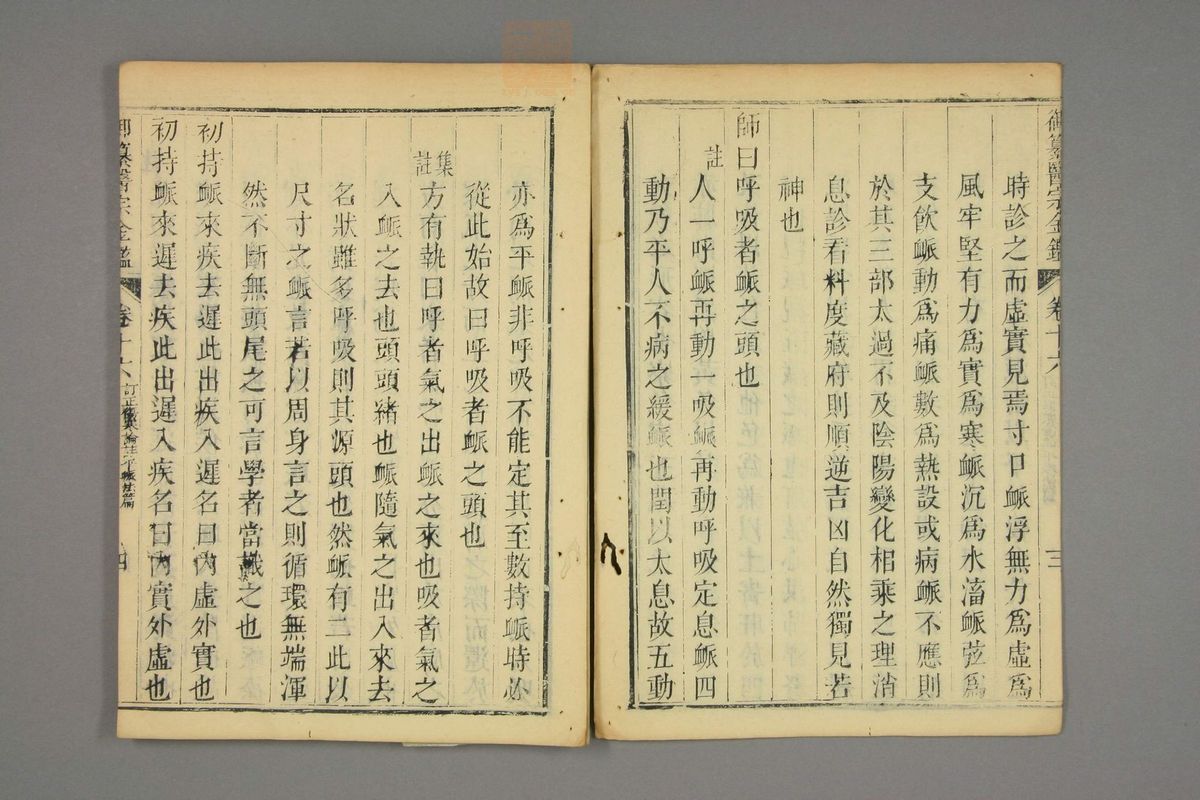 御纂醫宗金鑑 卷十六 三
時診之而虛實見焉寸口脈浮無力爲虛爲
風牢堅有力爲實爲寒脈沉爲水濇脈弦爲
支飲脈動爲痛脈數爲熱設或病脈不應則
於其三部太過不及陰陽變化相乘之理消
息診看料度藏府則順逆吉凶自然獨見若
神也
師曰呼吸者脈之頭也
註
人一呼脈再動一吸脈再動呼吸定息脈四
動乃平人不病之緩脈也閏以太息故五動
亦爲平脈非呼吸不能定其至數持脈時必
從此始故曰呼吸者脈之頭也
集註
方有執曰呼者氣之出脈之來也吸者氣之
入脈之去也頭頭緒也脈隨氣之出入來去
名狀雖多呼吸則其源頭也然脈有二此以
尺寸之脈言若以周身言之則循環無端渾
然不斷無頭尾之可言學者當識之也
初持脈來疾去遲此出疾入遲名曰內虛外實也
初持脈來遲去疾此出遲入疾名曰內實外虛也
御纂醫宗金鑑 卷十六 訂正傷寒論註平脈法篇 四